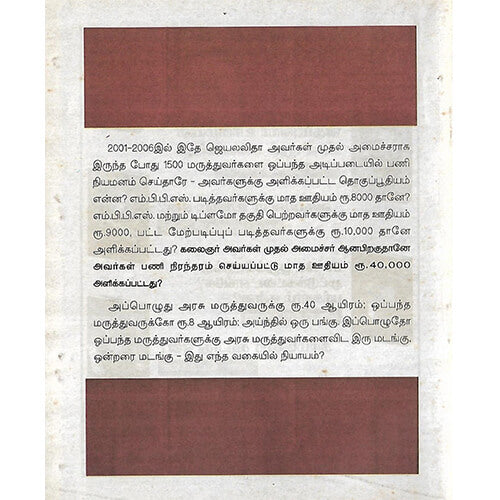 2001-2006இல் இதே ஜெயலலிதா அவர்கள் முதல் அமைச்சராக
இருந்த போது 1500 மருத்துவர்களை ஒப்பந்த அடிப்படையில் பணி
நியமனம் செய்தாரே - அவர்களுக்கு அளிக்கப்பட்ட தொகுப்பூதியம்
என்ன? எம்.பி.பி.எஸ். படித்தவர்களுக்கு மாத ஊதியம் ரூ.8000 தானே?
எம்.பி.பி.எஸ். மற்றும் டிப்ளமோ தகுதி பெற்றவர்களுக்கு மாத ஊதியம்
ரூ.9000, பட்ட மேற்படிப்புப் படித்தவர்களுக்கு ரூ.10,000 தானே
அளிக்கப்பட்டது? கலைஞர் அவர்கள் முதல் அமைச்சர் ஆனபிறகுதானே
அவர்கள் பணி நிரந்தரம் செய்யப்பட்டு மாத ஊதியம் ரூ.40,000
அளிக்கப்பட்டது?
அப்பொழுது அரசு மருத்துவருக்கு ரூ.40 ஆயிரம்; ஒப்பந்த
மருத்துவருக்கோ ரூ.8 ஆயிரம்; அய்ந்தில் ஒரு பங்கு. இப்பொழுதோ
ஒப்பந்த மருத்துவர்களுக்கு அரசு மருத்துவர்களைவிட இரு மடங்கு,
ஒன்றரை மடங்கு - இது எந்த வகையில் நியாயம்?